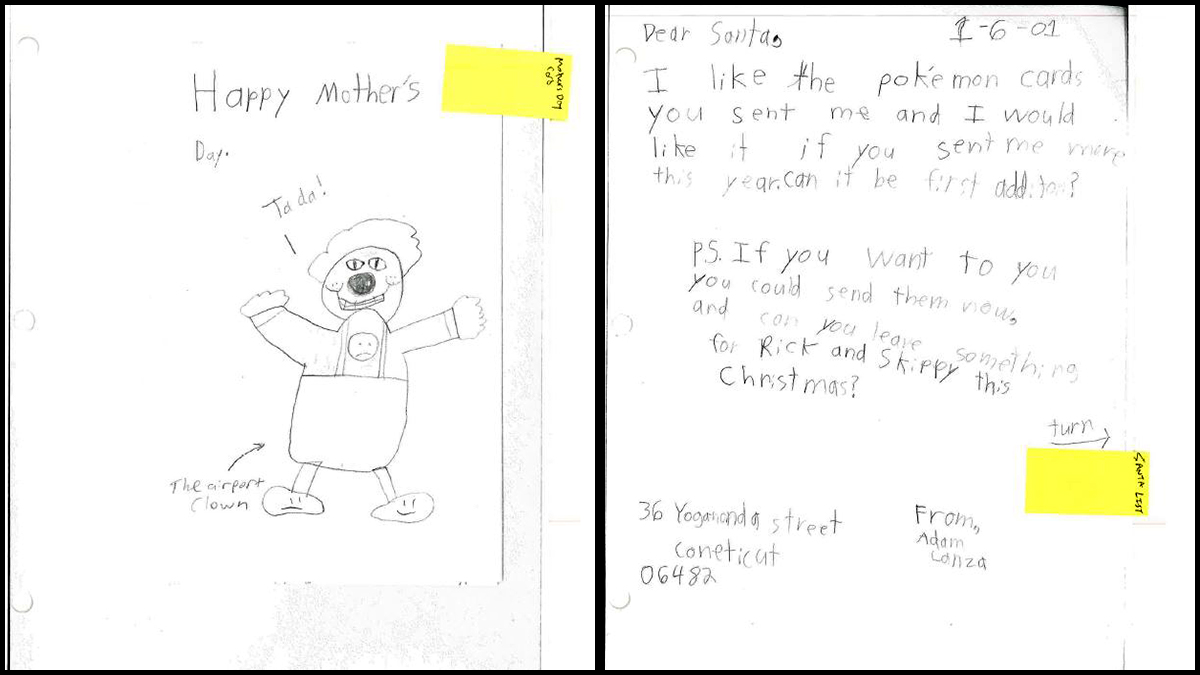 Happy Mother's
Day.
Mothers Day
Ta da!
The airport
Clown
Dear Santa,
1-6-01
I like the pokémon cards
you sent me and I would
like it if you sent me more
this year.can it be first additon?
P.S. If you want to you
you could send them now,
and can you leave something
for Rick and Skippy this
Christmas?
turn
SANTA LIST
36 Yogananda street
Coneticut
06482
From,
Adam
Lanza